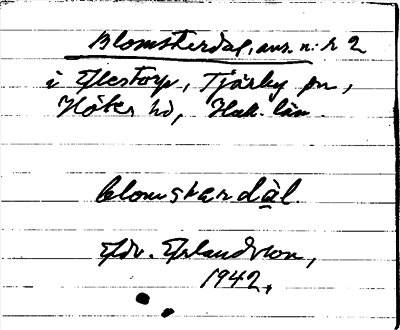 Blomsterdal, avs. n:r 2
i Eftestorp, Tjärby sn,
Höks hd, Hall. län.
blomstardàl
Edv. Erlandsson,
1942.